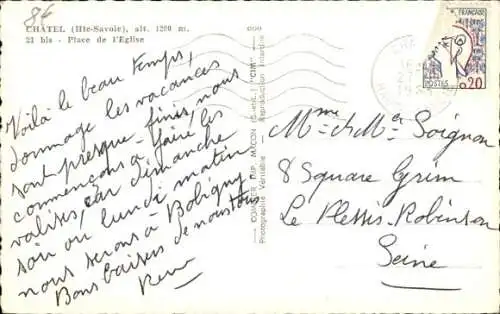 8€
CHATEL (Hte-Savoie), alt. 1200 m.
21 bis - Place de l'Eglise
Voilà le beau temps,
dommage les vacances
sont presque finis, nous
commençons à faire les
valises, car dimanche
soir ou lundi matin
nous serons à Bobigny
Bons baisers de nous tous
COMBIER IMP. MACON (S.-et-L.) "CIM"
Photographie Véritable - Reproduction Interdite
FRANÇAISE
POSTES
0,20
Mme & Mr Soignon
8 Square Grim
Le Plessis-Robinson
Seine